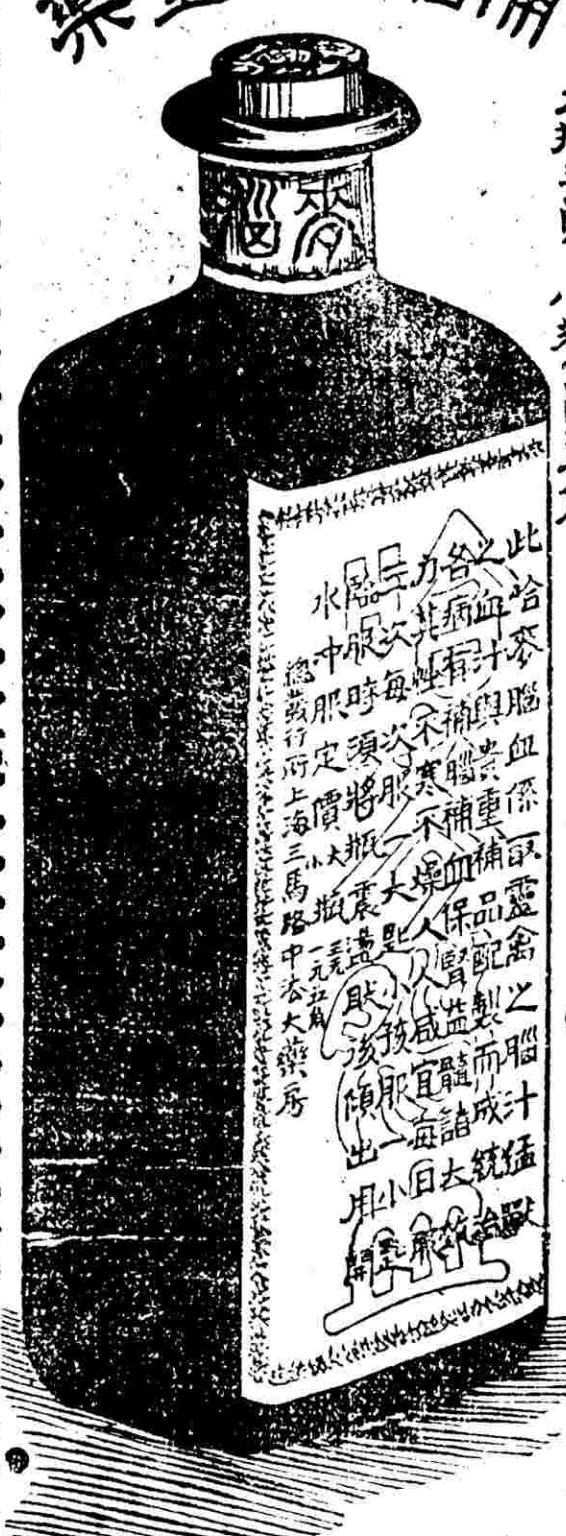 麥腦
此哈麥腦血係取靈禽之腦汁猛獸
之血汁與貴重補品配製而成統治
各病有補腦補血保腎益髓諸大效
力其性不寒不燥人人咸宜每日服
三次每次服一大匙小孩服一小匙
臨服時須將瓶震盪然後傾出用開
水冲服定價大小瓶三元一元五角
總發行所上海三馬路中法大藥房